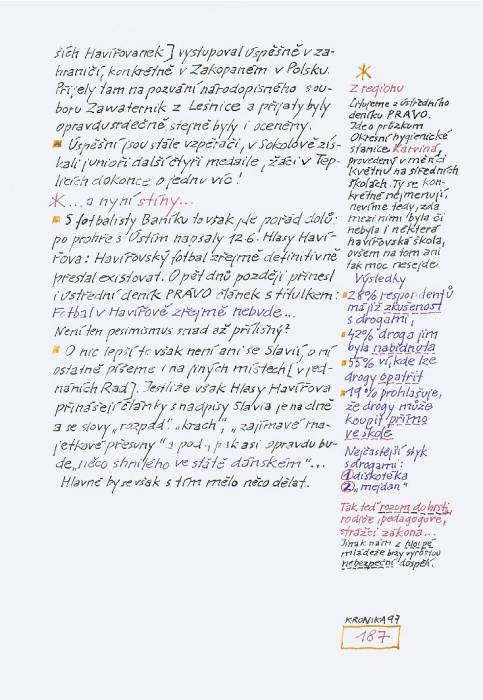 ších Havířovanek] vystupoval úspěšně v za-
hraničí, konkrétně v Zakopaném v Polsku.
Přijely tam na pozvání národopisného sou-
boru Zawaternik z Leśnice a přijaty byly
opravdu srdečně, stejně byly i oceněny.
Úspěšní jsou stále vzpěrači, v Sokolově zís-
kali junioři další čtyři medaile, žáci v Tep-
licích dokonce o jednu víc!
...a nyní stíny...
S fotbalisty Baníku to však jde pořád dolů:
po prohře s Ústím napsaly 12.6. Hlasy Haví-
řova: Havířovský fotbal zřejmě definitivně
přestal existovat. O pět dnů později přinesl
i ústřední deník PRAVO článek s titulkem:
Fotbal v Havířově zřejmě nebude...
Není ten pesimismus snad až přílišný?
O nic lepší to však není ani se Slavií, o ní
ostatně píšeme i na jiných místech [v jed-
náních Rad]. Jestliže však Hlasy Havířova
přinášejí články s nadpisy Slavia je na dně
a se slovy „rozpad", „krach", „zajímavé ma-
jetkové přesuny" a pod., pak asi opravdu bu-
de „něco shnilého ve státě dánském"...
Hlavně by se však s tím mělo něco dělat.
Z regionu
Citujeme z ústředního
deníku PRAVO.
Jde o průzkum
Okresní hygienické
stanice Karviná,
provedený v měsíci
květnu na středních
školách. Ty se kon-
krétně nejmenují,
nevíme tedy, zda
mezi nimi byla či
nebyla i některá
havířovská škola,
ovšem na tom ani
tak moc nesejde
Výsledky
28% respondentů
má již zkušenost
s drogami,
42% droga jim
byla nabídnuta
55% ví, kde lze
drogy opatřit
19% prohlašuje,
že drogy může
koupit přímo
ve škole
Nejčastější styk
s drogami:
1 diskotéka
2 „mejdan"
Tak teď rozum do hrsti,
rodiče, pedagogové,
strážci zákona...
Jinak nám z hloupé
mládeže brzy vyrostou
nebezpeční dospělí.
KRONIKA 97
187